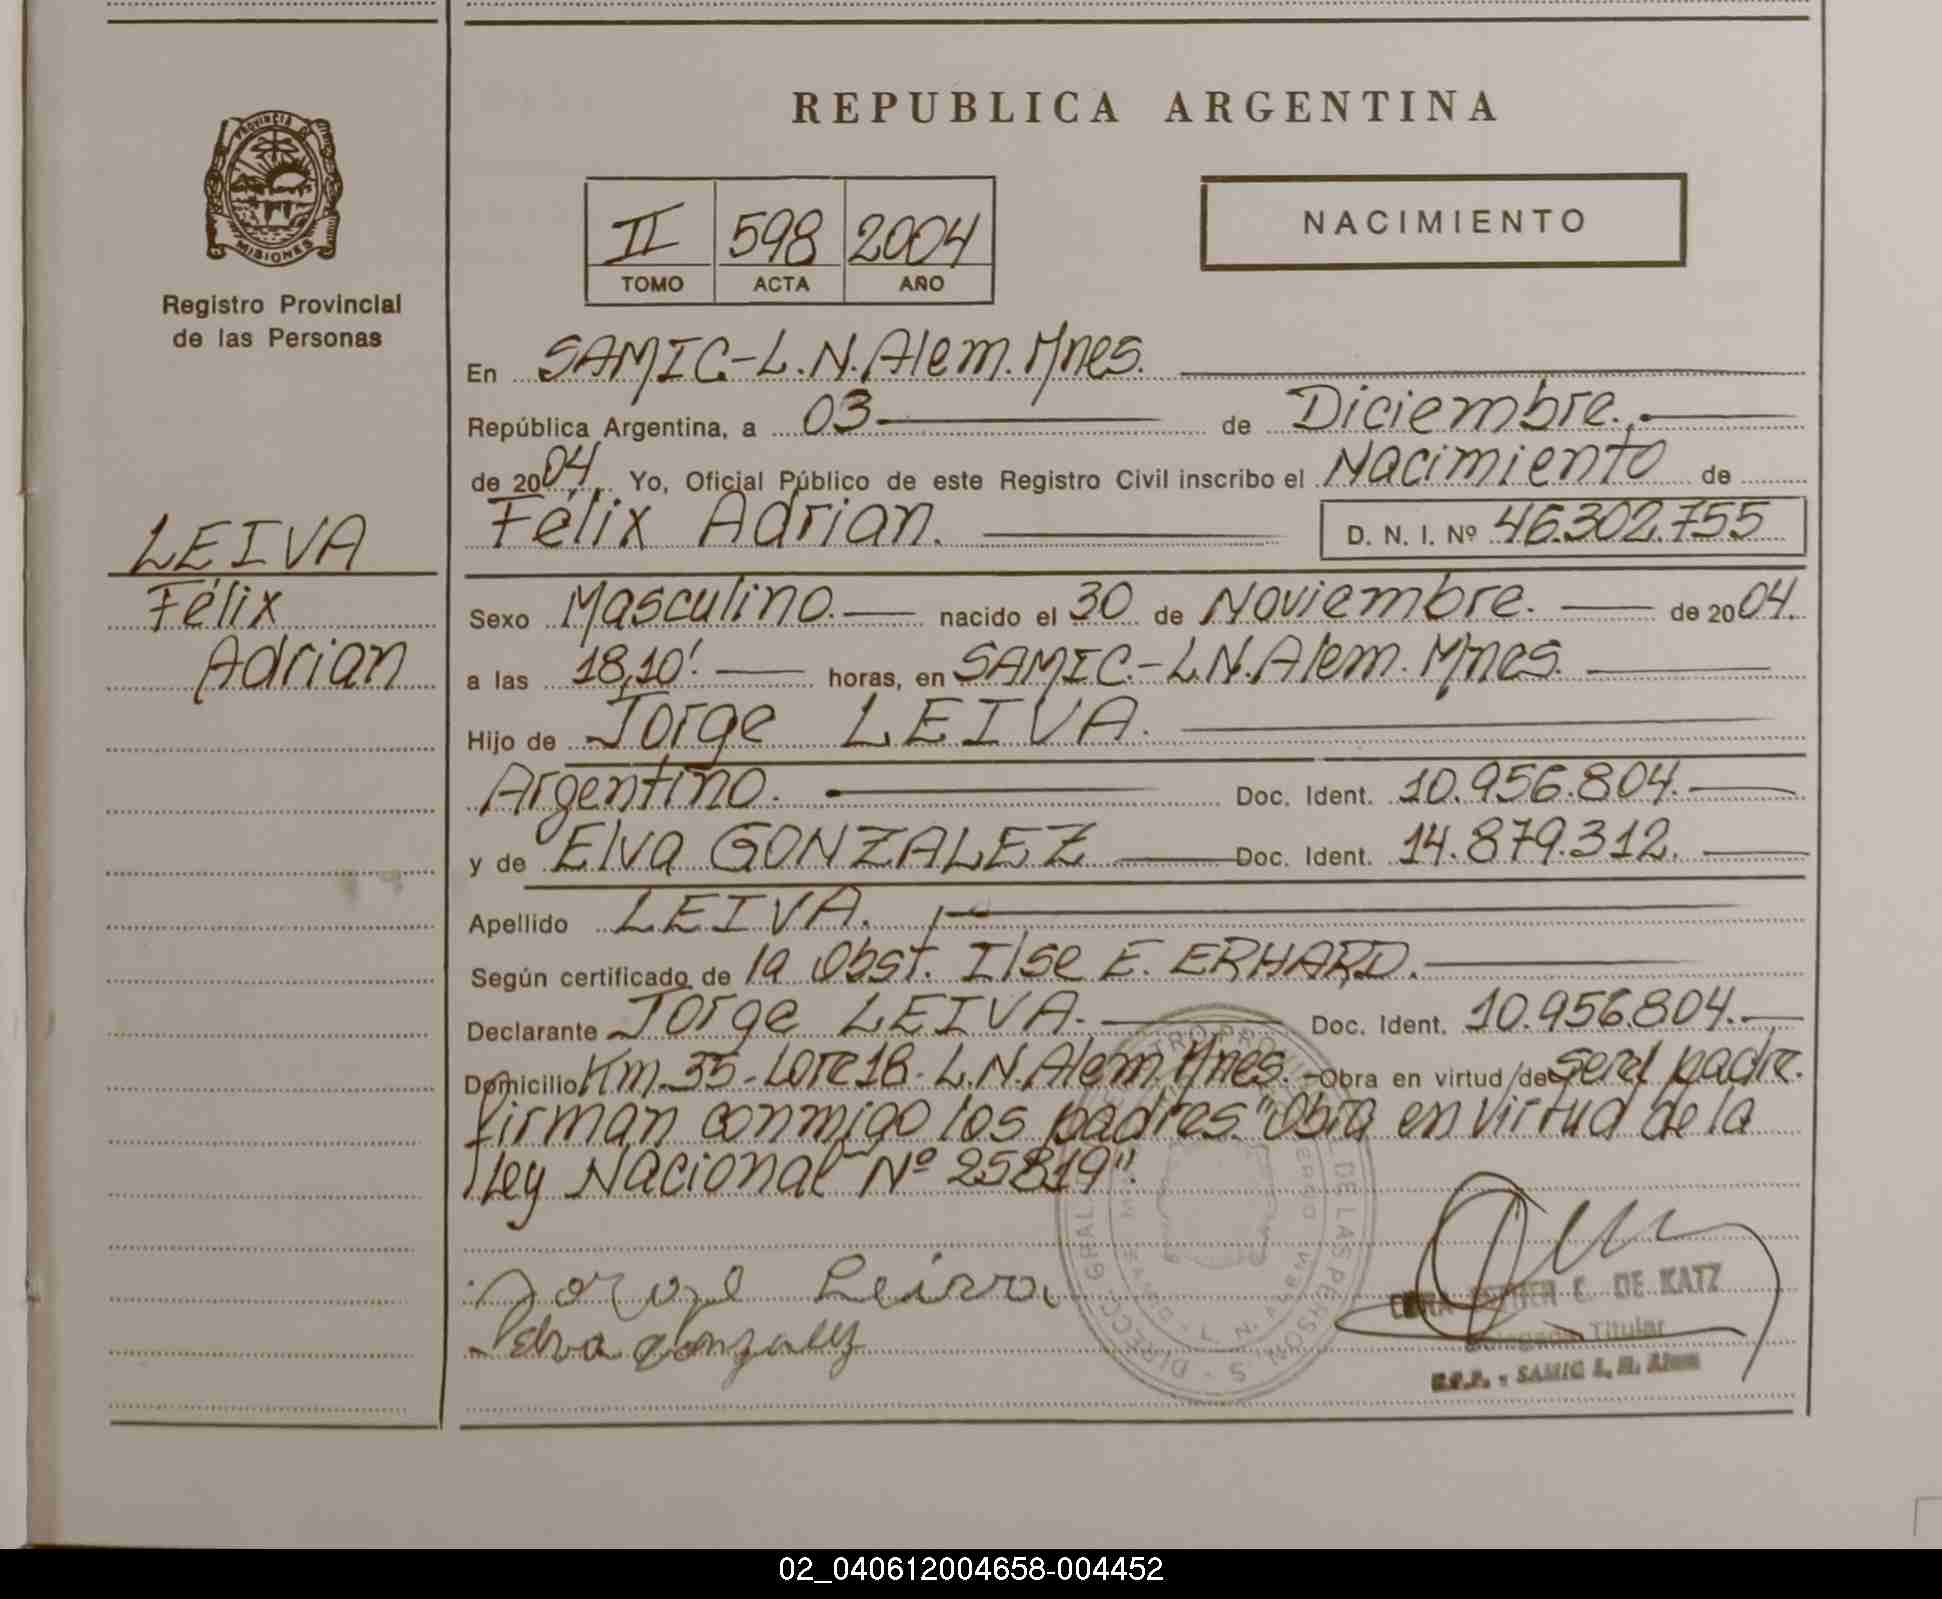 PROVINCIA DE
MISIONES
Registro Provincial
de las Personas
LEIVA
Félix
Adrian
REPUBLICA ARGENTINA
II 598 2004
TOMO ACTA AÑO
NACIMIENTO
En SAMIC-L.N.Alem.Mnes.
República Argentina, a 03 de Diciembre.
de 2004 Yo, Oficial Público de este Registro Civil inscribo el Nacimiento de
Félix Adrian. D. N. I. Nº 46.302.755
Sexo Masculino. nacido el 30 de Noviembre. de 2004.
a las 18,10' horas, en SAMIC.-L.N.Alem. Mnes.
Hijo de Jorge LEIVA.
Argentino. Doc. Ident. 10.956.804.
y de Elva GONZALEZ Doc. Ident. 14.879.312.
Apellido LEIVA.
Según certificado de la Obst. Ilse E. ERHARD.
Declarante Jorge LEIVA. Doc. Ident. 10.956.804.
Domicilio Km.35-Lote18-L.N.Alem.Mnes. Obra en virtud de ser el padre.
firman conmigo los padres "Obra en virtud de la
ley Nacional Nº 25819".
Jorge Leiva
Elva Gonzalez
DE KATZ
Delegada Titular
R.P.P. - SAMIC L. N. Alem
02_040612004658-004452